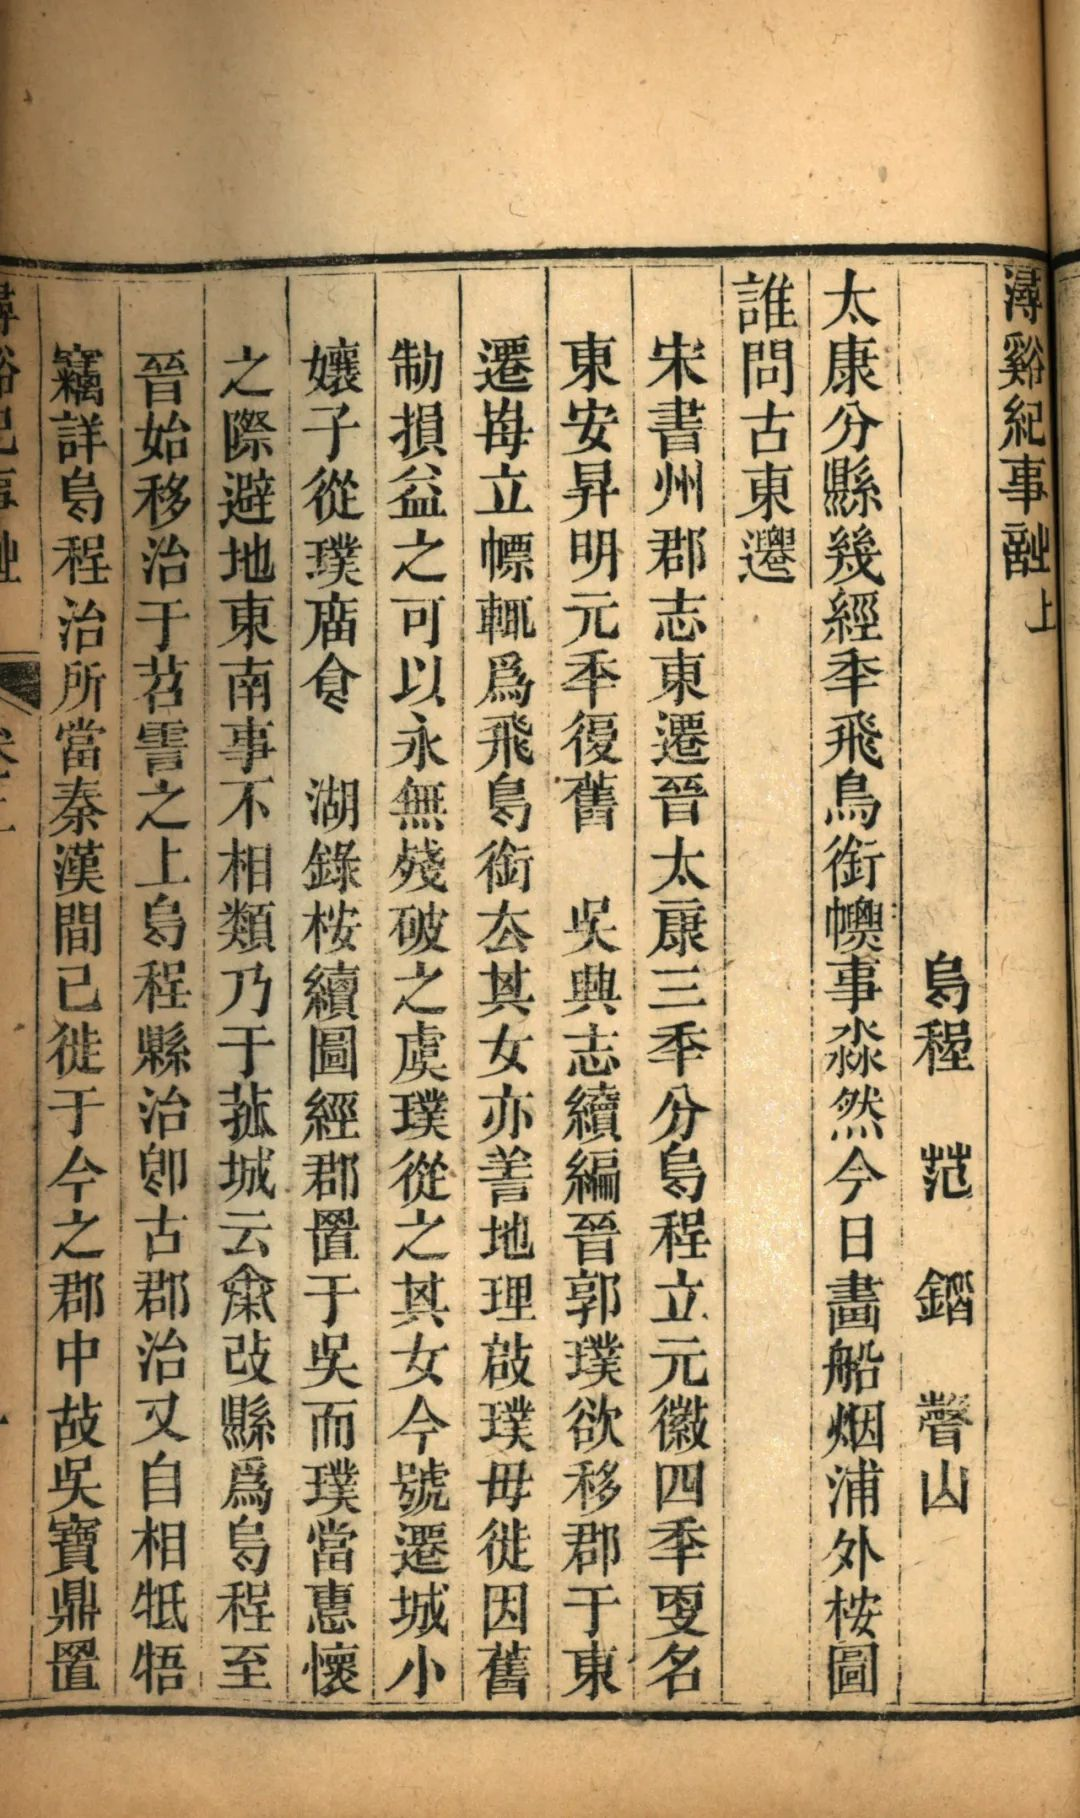 潯谿紀事詩上
烏程 范 鍇 聲山
太康分縣幾經秊飛鳥銜幖事淼然今日畫船烟浦外桉圖
誰問古東遷
宋書州郡志東遷晉太康三秊分烏程立元徽四秊更名
東安昇明元秊復舊 吳興志續編晉郭璞欲移郡于東
遷每立幖輒爲飛鳥銜去其女亦善地理啟璞毋徙因舊
制損益之可以永無殘破之虞璞從之其女今號遷城小
孃子從璞庿食 湖錄桉續圖經郡置于吳而璞當惠懷
之際避地東南事不相類乃于菰城云秦改縣爲烏程至
晉始移治于苕霅之上烏程縣治卽古郡治又自相牴牾
竊詳烏程治所當秦漢間已徙于今之郡中故吳寶鼎置